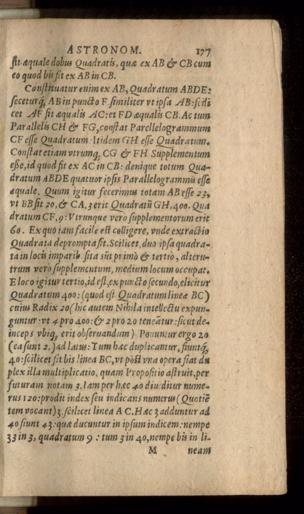 ASTRONOM. 177
sit æquale dobus Quadratis, quæ ex AB & CB cum
eo quod bis fit ex AB in CB.
Constituatur enim ex AB, Quadratum ABDE:
seceturq́, AB in puncto F. similiter vt ipsa AB: scili
cet AF sit æqualis AC: et FD æqualis CB. Ac tum
Parallelis CH & FG, constat Parellelogrammum
CF esse Quadratum: Itidem GH esse Quadratum.
Constat etiam vtrumq́, CG & FH Supplementum
esse, id quod fit ex AC in CB: denique totum Qua-
dratum ABDE quatuor ipsis Parallelogrammis esse
æquale. Quum igitur fecerimus totam AB esse 23,
vt BB sit 20, & CA, 3 erit Quadratū GH, 400. Qua
dratum CF, 9: Vtrunque vero supplementorum erit
60. Ex quo iam facile est colligere, vnde extractio
Quadrata deprompta sit. Scilicet, duo ipsa quadra-
ta in locis imparib. sita sūt primò & tertio, alteru-
trum verò supplementum, medium locum occupat.
E loco igitur tertio, id est, expuncto secundo, elicitur
Quadratum 400: (quod est Quadratum lineæ BC)
cuius Radix 20 (hic autem Nihila intellectu expun-
guntur: vt 4 pro 400: & 2 pro 20 teneatur: sicut de-
inceps vbiq́, erit obseruandum) Ponuntur ergo 20
(ea sunt 2.) ad latus: Tum hæc duplicantur, fiuntq́,
40: scilicet fit bis linea BC, vt post vna opera fiat du
plex illa multiplicatio, quam Propositio astruit, per
futuram notam 3. Iam per hæc 40 diuiditur nume-
rus 120: prodit index seu indicans numerus (Quotiē
tem vocant) 3. scilicet linea AC. Hæc 3 adduntur ad
40 fiunt 43: quæ ducuntur in ipsum indicem: nempe
33 in 3, quadratum 9: tum 3 in 40, nempe bis in li-
M neam